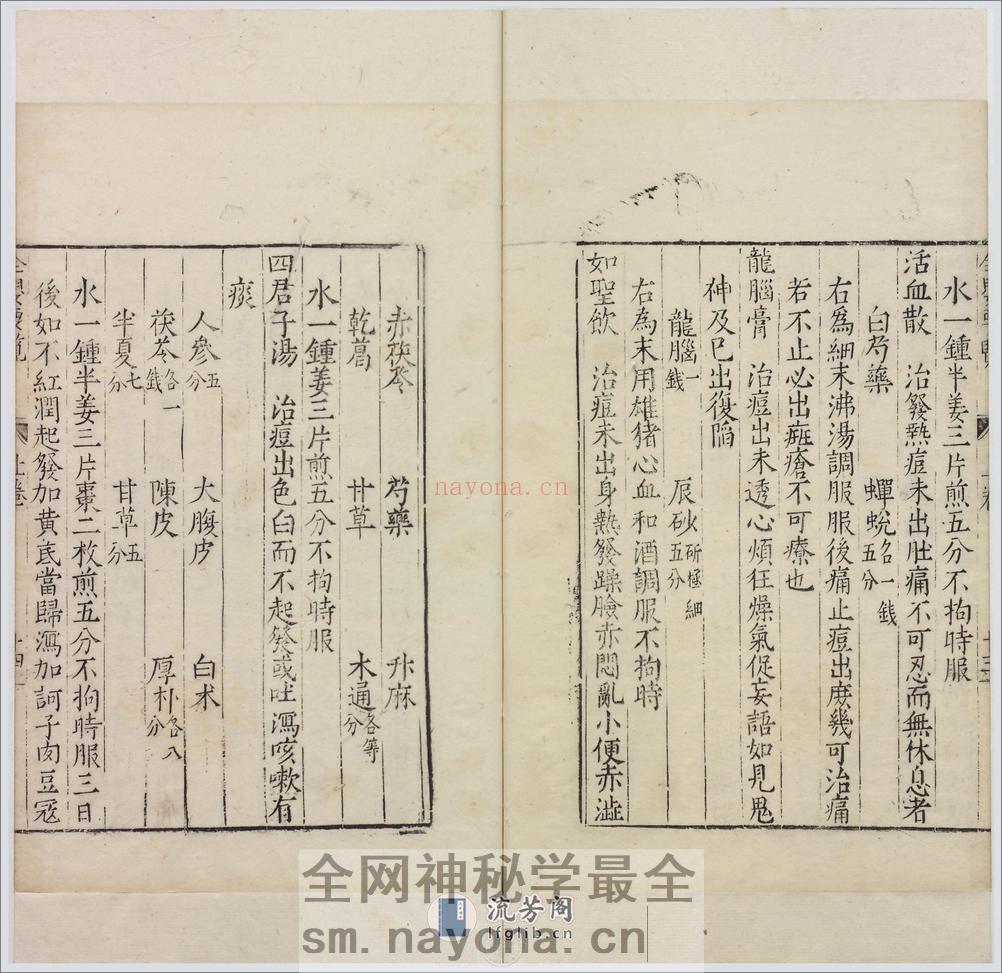 水一鍾半姜三片煎五分不拘時服
活血散　治發熱痘未出肚痛不可忍而無休息者
白芍藥　蟬蛻各一錢五分
右爲細末沸湯調服服後痛止痘出庻幾可治痛
若不止必出㿀瘡不可療也
龍腦膏　治痘出未透心煩狂燥氣促妄語如見鬼
神及已出復陷
龍腦一錢　辰砂研極細五分
右為末用雄猪心血和酒調服不拘時
如聖飲　治痘未出身熱發躁臉赤悶亂小便赤澁
赤茯苓　芍藥　升麻
乾葛　甘草　木通各等分
水一鍾姜三片煎五分不拘時服
四君子湯　治痘出色白而不起發或吐瀉咳嗽有
痰
人參五分　大腹皮　白朮
茯苓各一錢　陳皮　厚朴各八分
半夏七分　甘草五分
水一鍾半姜三片棗二枚煎五分不拘時服三日
後如不紅潤起發加黃芪當歸瀉加訶子肉豆蔻
上卷
十四
nayona.cn
全网神秘学最全
流芳阁
lfglib.cn
sm.nayona.cn